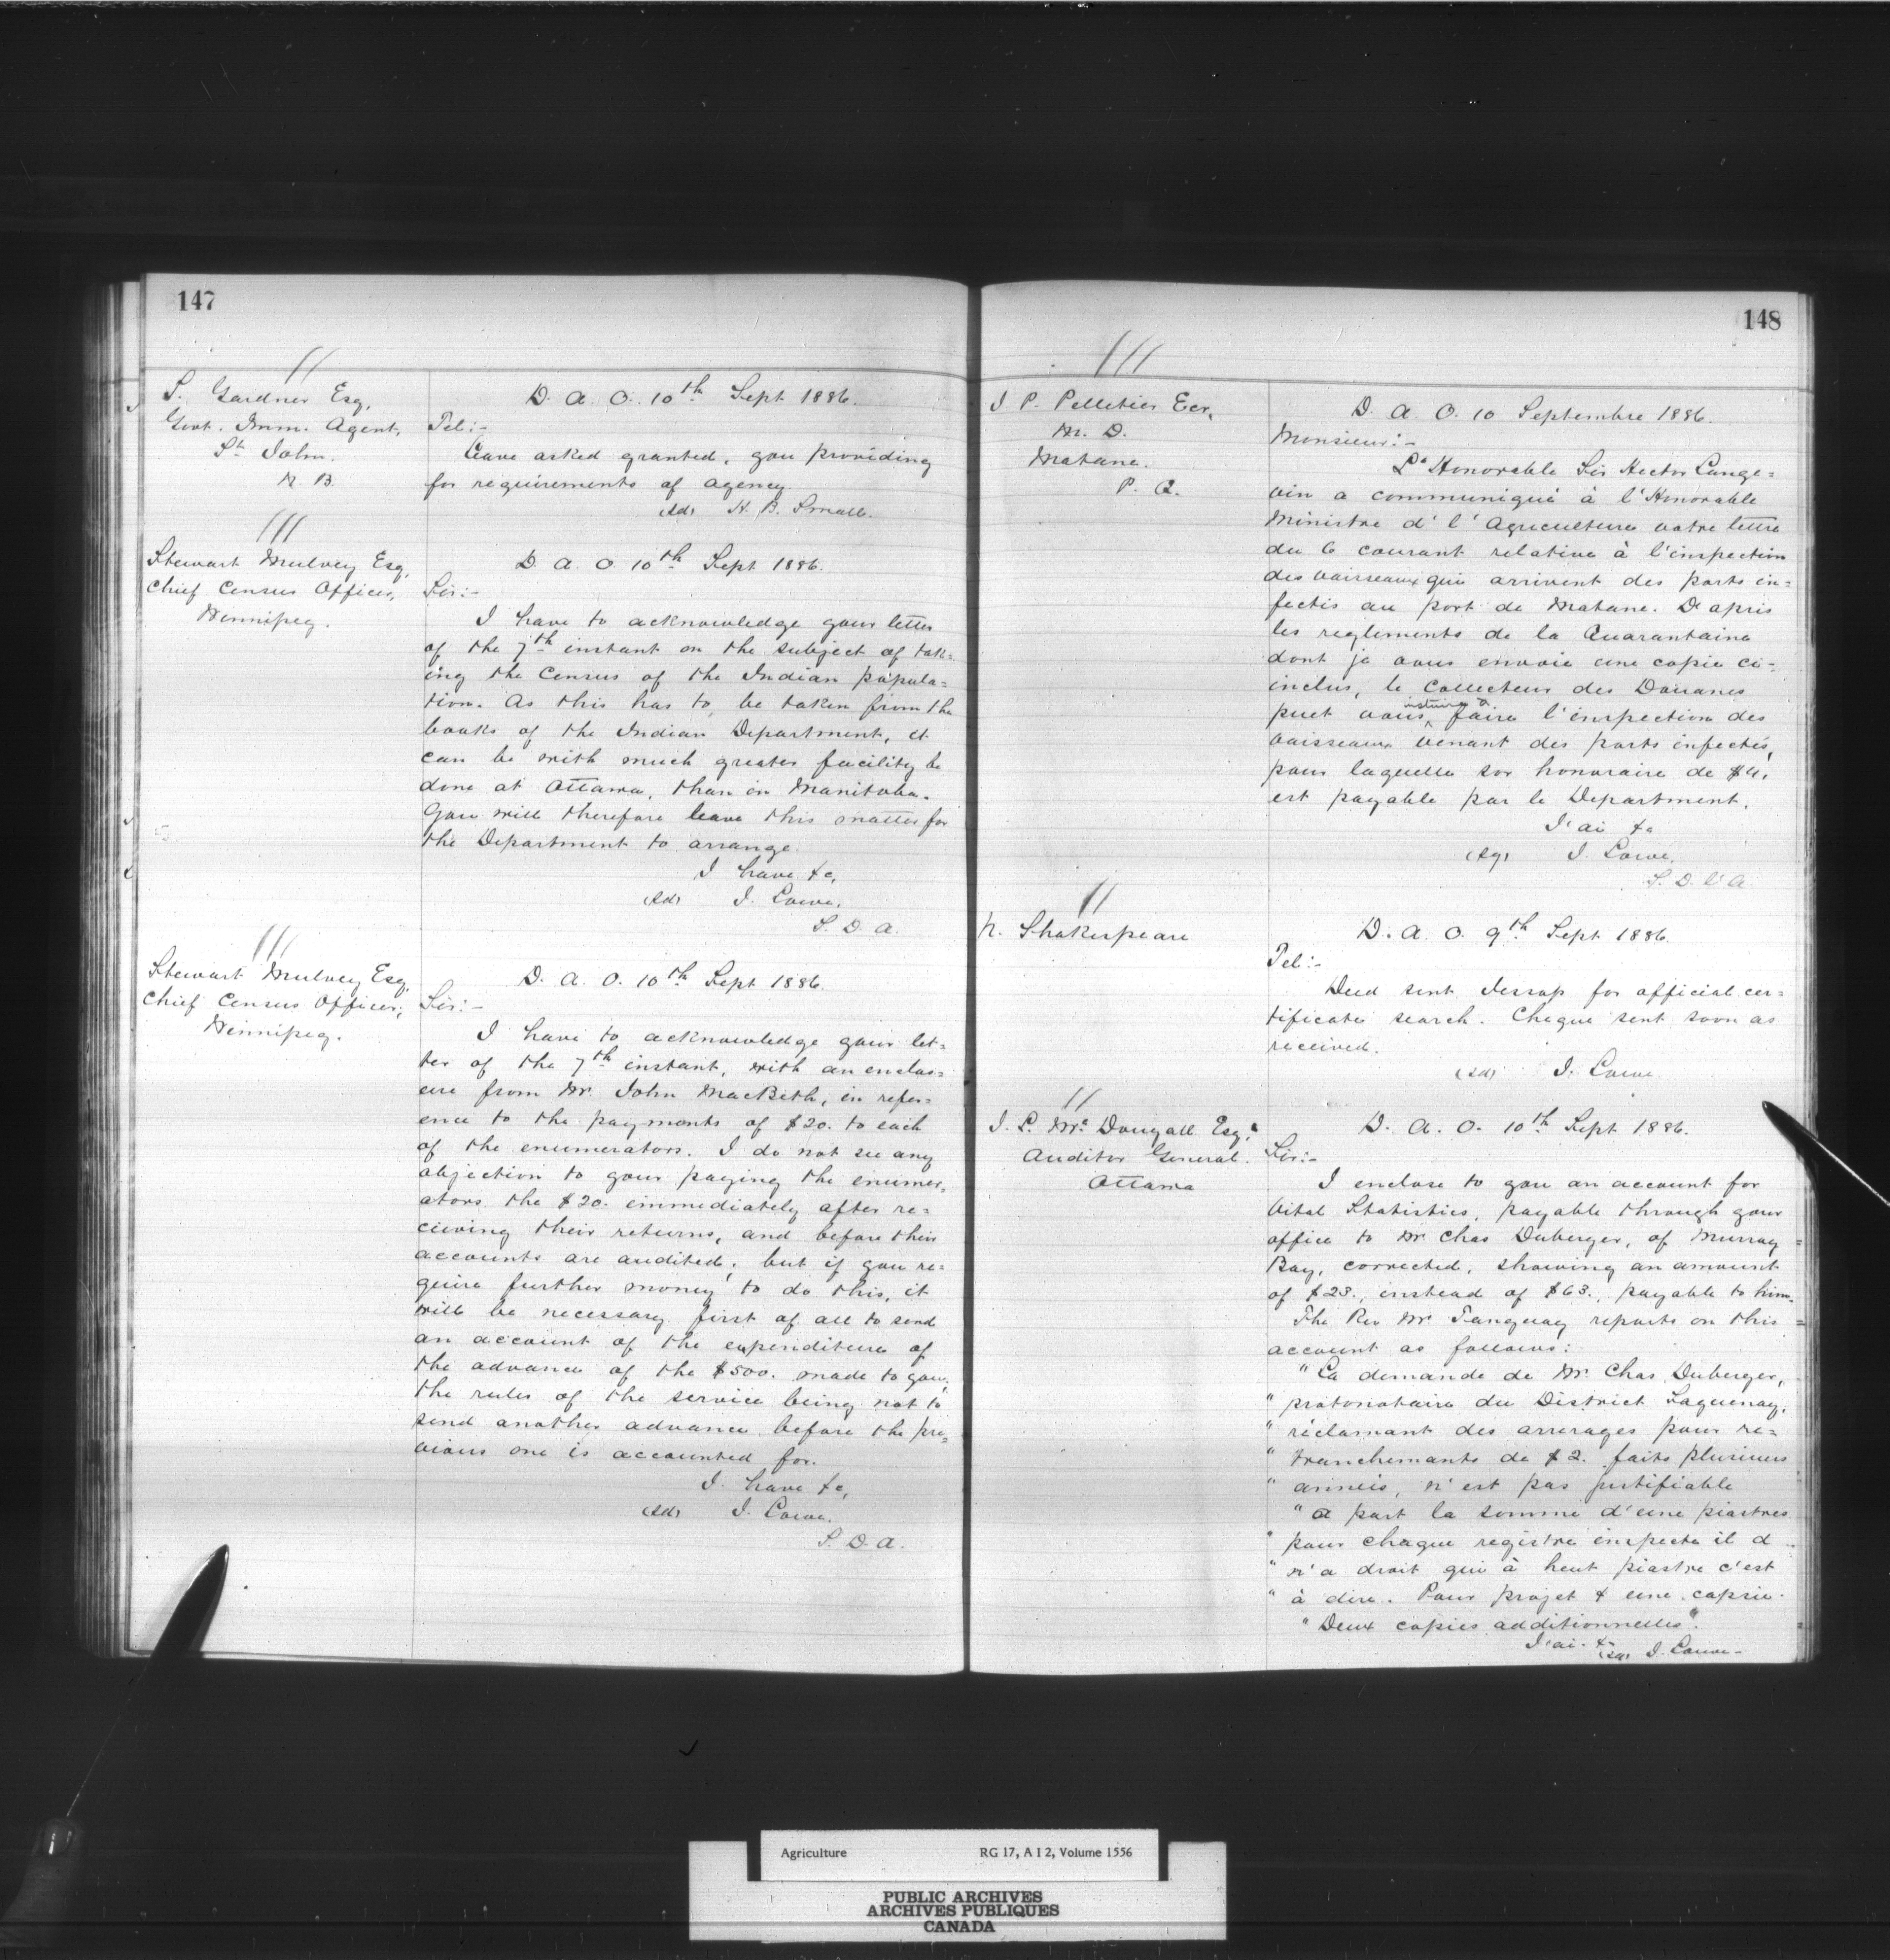 147
S. Gardner Esq,
Govt. Imm. Agent,
St John.
N. B.
D. A. O. 10th Sept 1886.
Tel:-
Leave asked granted, you providing
for requirements of agency.
(sd) H. B. Small.
Stewart Mulvey Esq,
Chief Census Officer,
Winnipeg.
D. A. O. 10th Sept 1886.
Sir:-
I have to acknowledge your letter
of the 7th instant on the subject of tak=
ing the Census of the Indian popula=
tion. As this has to be taken from the
books of the Indian Department, it
can be with much greater facility be
done at Ottawa, than in Manitoba.
You will therefore leave this matter for
the Department to arrange.
I have &c,
(sd) J. Lowe.
S. D. A.
Stewart Mulvey Esq,
Chief Census Officer,
Winnipeg.
D. A. O. 10th Sept 1886.
Sir:-
I have to acknowledge your let=
ter of the 7th instant, with an enclos=
ure from Mr. John MacBeth, in refer=
ence to the payments of $20. to each
of the enumerators. I do not see any
objection to your paying the enumer=
ators the $20. immediately after re=
ceiving their returns, and before their
accounts are audited; but if you re=
quire further money to do this, it
will be necessary first of all to send
an account of the expenditure of
the advance of the $500. made to you,
the rules of the service being not to
send another advance before the pre=
vious one is accounted for.
I have &c,
(sd) J. Lowe.
S. D. A.
148
J. P. Pelletier Ecr,
M. D.
Matane.
P. Q.
D. A. O. 10 Septembre 1886.
Monsieur:-
L'Honorable Sir Hector Lange=
vin a communiqué à l'Honorable
Ministre d' l'Agriculture votre lettre
du 6 courant relative à l'inspection
des vaisseaux qui arrivent des ports in=
fectés au port de Matane. D'après
les reglements de la Quarantaine
dont je vous envoie une copie ci-
inclus, le Collecteur des Douanes
instruire à
puet vous faire l'inspection des
vaisseaux venant des ports infectés,
pour laquelle son honoraire de $4.
est payable par le Department.
J'ai &c
(sg) J. Lowe.
S. D. l'A.
N. Shakespeare
D. A. O. 9th Sept 1886.
Tel:-
Deed sent Jessop for official cer=
tificate search. Cheque sent soon as
received.
(sd) J. Lowe
J. L. McDougall Esq,
Auditor General.
Ottawa
D. A. O. 10th Sept 1886.
Sir:-
I enclose to you an account for
Vital Statistics, payable through your
office to Mr Chas Duberger, of Murray
Bay, corrected, showing an amount
of $23., instead of $63., payable to him.
The Rev Mr. Tanguay reports on this
account as follows:
"La demande de Mr. Chas Duberger,
" protonotaire du District Saguenay,
" réclamant des arrerages pour re=
" tranchemants de $2. faits plusieurs
" anneés, n'est pas justifiable
" a part la somme d'une piastres
" pour chaque registre inspecte il d
" n'a droit qui à heut piastre c'est
" à dire. Pour projet & une copie.
" Deux copies additionnelles".
J'ai &c
(sd) J. Lowe-
Agriculture RG 17, A I 2, Volume 1556
PUBLIC ARCHIVES
ARCHIVES PUBLIQUES
CANADA